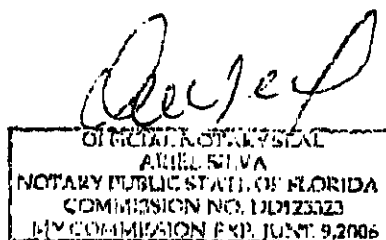 OFFICIAL NOTARY SEAL
SILVA
NOTARY PUBLIC STATE OF FLORIDA
COMMISSION NO. DD123323
MY COMMISSION EXP. JUNE 9,2006